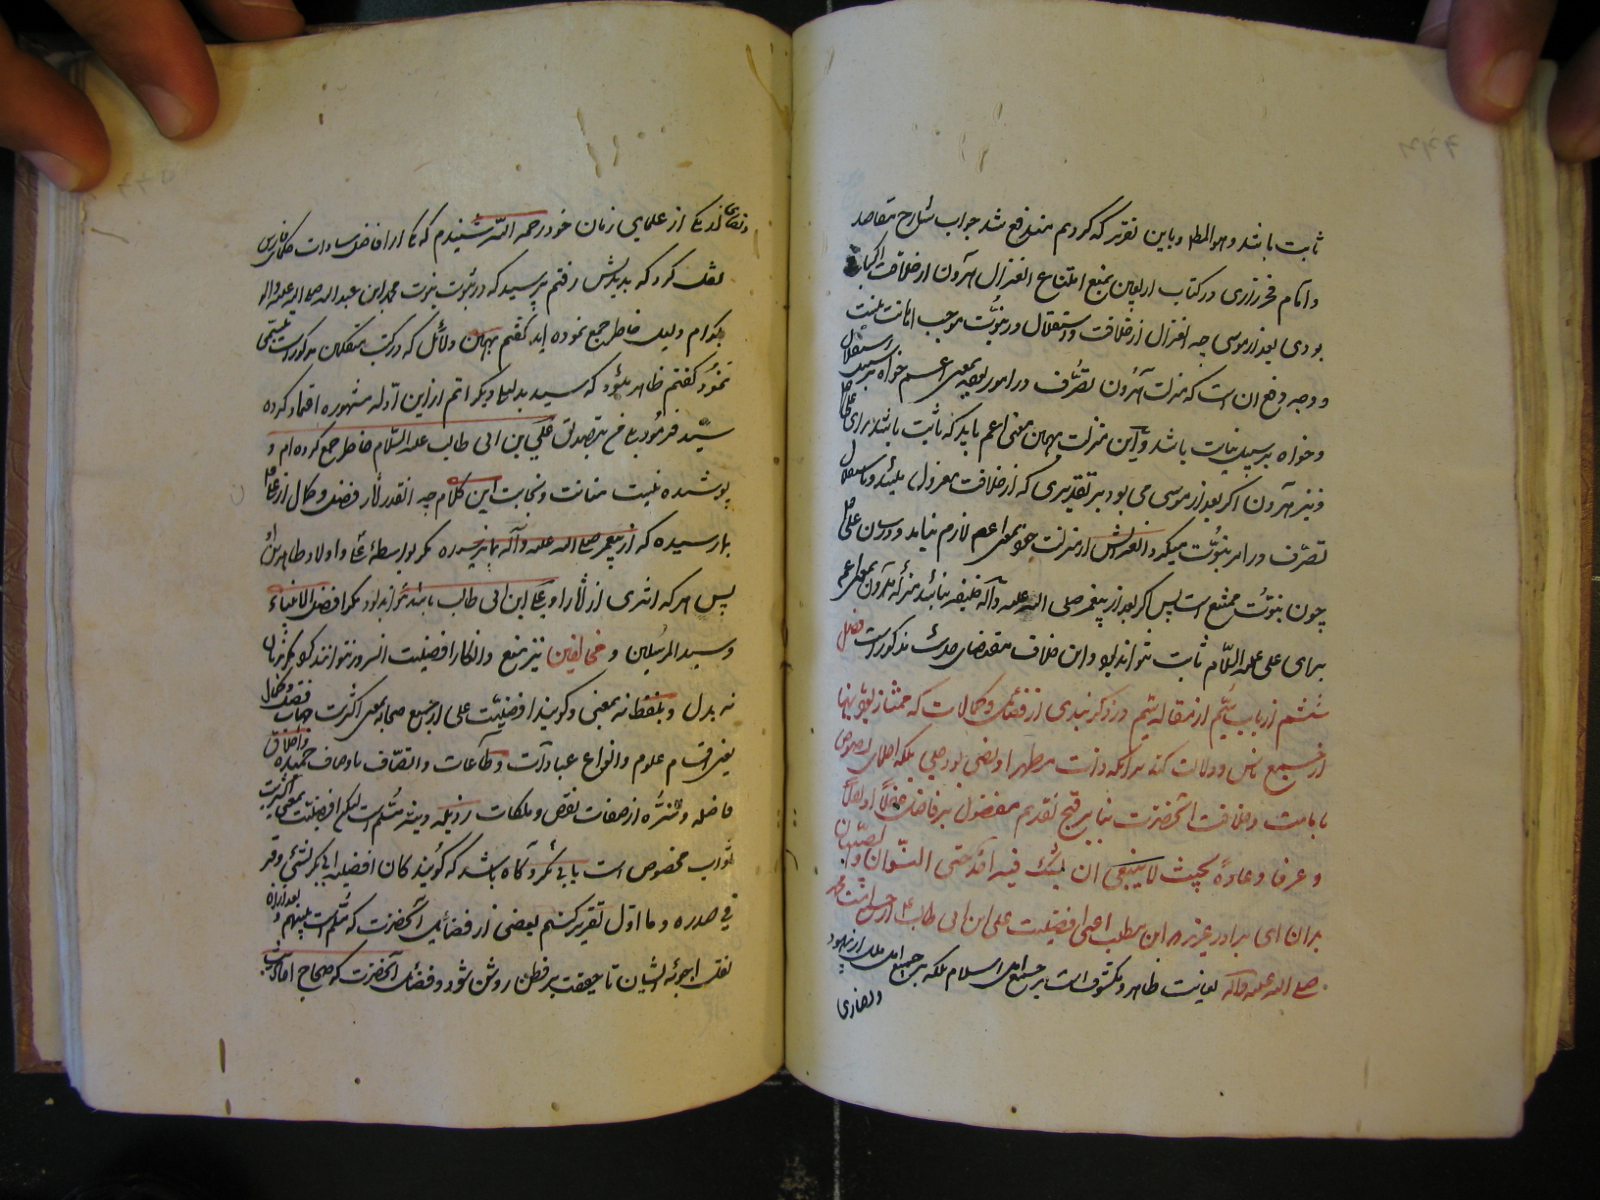 ثابت باشد و هو المطلوب و باین تقریر که کردیم مندفع شد جواب شارح مقاصد
و امام فخر رازی در کتاب اربعین بمنع امتناع انعزال هرون از خلافت اکر باقی
بودی بعد از موسی چه انعزال از خلافت و استقلال در نبوت موجب اهانت نیست
و وجه دفع ان است که منزلت هرون تصرف در امور بوده بمعنی اعم خواه بر سبیل استقلال
و خواه بر سبیل نیابت باشد و این منزلت بهمان معنی اعم باید که ثابت باشد برای علی
و نیز هرون اکر بعد از موسی می بود بر تقدیری که از خلافت معزول میشد و باستقلال
تصرف در امر نبوت میکرد انعزالش از منزلت بمعنی اعم لازم نیاید و در شان علی
چون نبوت ممتنع است پس اکر بعد از پیغمبر صلی الله علیه و آله خلیفه نباشد منزله هرون بمعنی اعم
برای علی علیه السلام ثابت نتواند بود و این خلاف مقتضای حدیث مذکور است فصل
ششم از باب سیم از مقاله سیم در ذکر نبذی از فضائل و کمالات که ممتاز بود بانها
از جمیع ناس و دلالت کند بر انکه ذات مطهر او نص بود جلی بلکه اجلای نصوص
بامامت و خلافت انحضرت بنا بر قبح تقدیم مفضول بر فاضل عقلا و نقلا
و عرفا و عادة بحیث لا ینبغی ان یشک فیه احد حتی النسوان و الصبیان
بدان ای برادر عزیز که این مطلب اعنی افضلیت علی ابن ابی طالب از جمیع امت محمد
صلی الله علیه و آله بغایت ظاهر و مکشوف است بر جمیع اهل اسلام بلکه بر جمیع اهل ملل از یهود
و نصاری
و نصاری از یکی از علمای زمان خود رحمه الله شنیدم که یکی را از افاضل سادات حکمای فارس
نقل کرد که بدیدنش رفتم پرسید که در ثبوت نبوت محمد ابن عبد الله صلی الله علیه و اله
بکدام دلیل خاطر جمع نموده اید کفتم بهمان دلائل که در کتب متکلمین مذکور است تبسمی
نمود کفتم ظاهر میشود که سید بدلیل دیکر اتم از این ادله مشهوره اعتماد کرده
سید فرمود بلی من بتصدیق علی بن ابی طالب علیه السلام خاطر جمع کرده ام و
پوشیده نیست متانت و نجابت این کلام چه انقدر آثار فضل و کمال از علی
بما رسیده که از پیغمبر صلی الله علیه و آله بما نرسیده مکر بواسطه علی و اولاد طاهرین او
پس هر که اثری از آثار او علی ابن ابی طالب باشد نتواند بود مکر افضل الانبیاء
و سید المرسلین و مخالفین نیز منع و انکار افضلیت انسرور نتوانند کرد مکر بزبان
نه بدل و بلفظ نه بمعنی و کویند افضلیت علی از جمیع صحابه بمعنی اکثریت جهات فضل و کمال
یعنی اقسام علوم و انواع عبادات و طاعات و اتصاف باوصاف حمیده و اخلاق
فاضله و تنزه از صفات نقص و ملکات رذیله و دنیه مسلم است لیکن افضلیت بمعنی اکثریت
ثواب مخصوص است بابی بکر و کاه باشد که کویند کان افضلیه ابی بکر لشیء وقر
فی صدره و ما اول تقریر کنیم بعضی از فضائل آنحضرت که مسلم است بینهم و بعد از ان
نقل اجوبه ایشان تا حقیقت بر فطن روشن شود و فضائل آنحضرت که صحاح احادیث